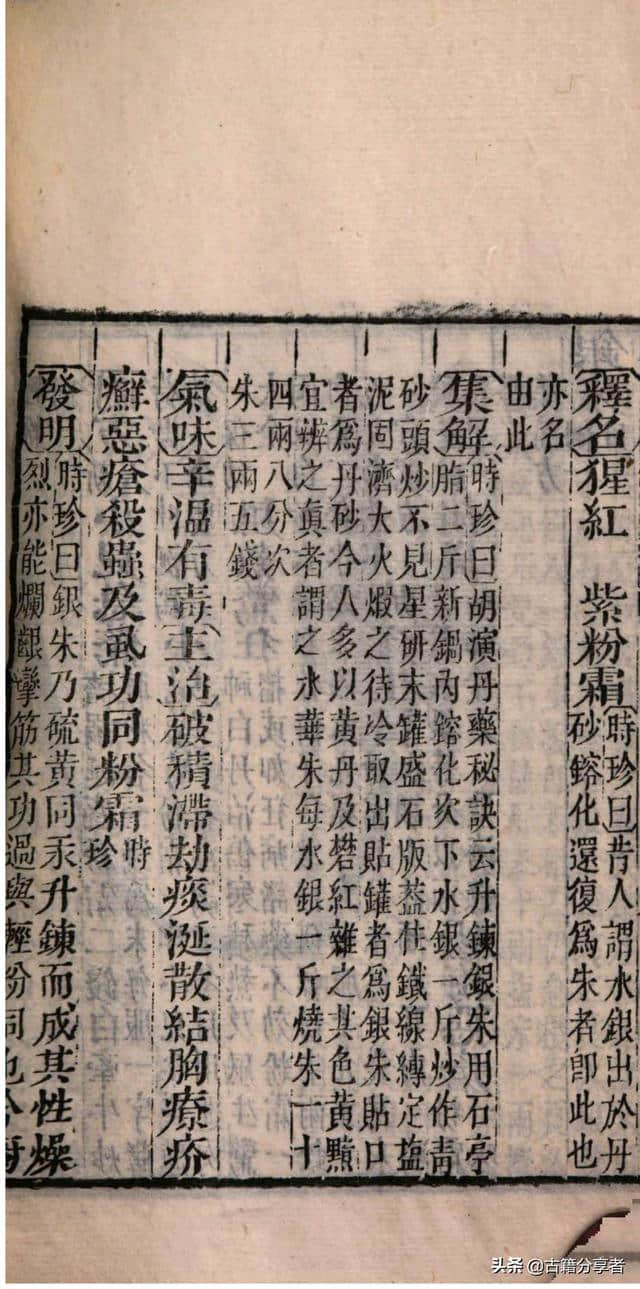 釋名猩紅　紫粉霜時珍曰昔人謂水銀出於丹
砂鎔化還復爲朱者卽此也
亦名
由此
集解時珍曰胡演丹藥秘訣云升鍊銀朱用石亭
脂二斤新鍋內鎔化次下水銀一斤炒作靑
砂頭炒不見星研末罐盛石版葢住鐵線縛定鹽
泥固濟大火煅之待冷取出貼罐者爲銀朱貼口
者爲丹砂今人多以黃丹及礬紅雜之其色黃黯
宜辨之真者謂之水華朱每水銀一斤燒朱一十
四兩八分次
朱三兩五錢
氣味辛溫有毒主治破積滯劫痰涎散結胸療疥
癬惡瘡殺蟲及虱功同粉霜時
珍
發明時珍曰銀朱乃硫黃同汞升鍊而成其性燥
烈亦能爛齦攣筋其功過與輕粉同也今廚
头条 @古籍分享者